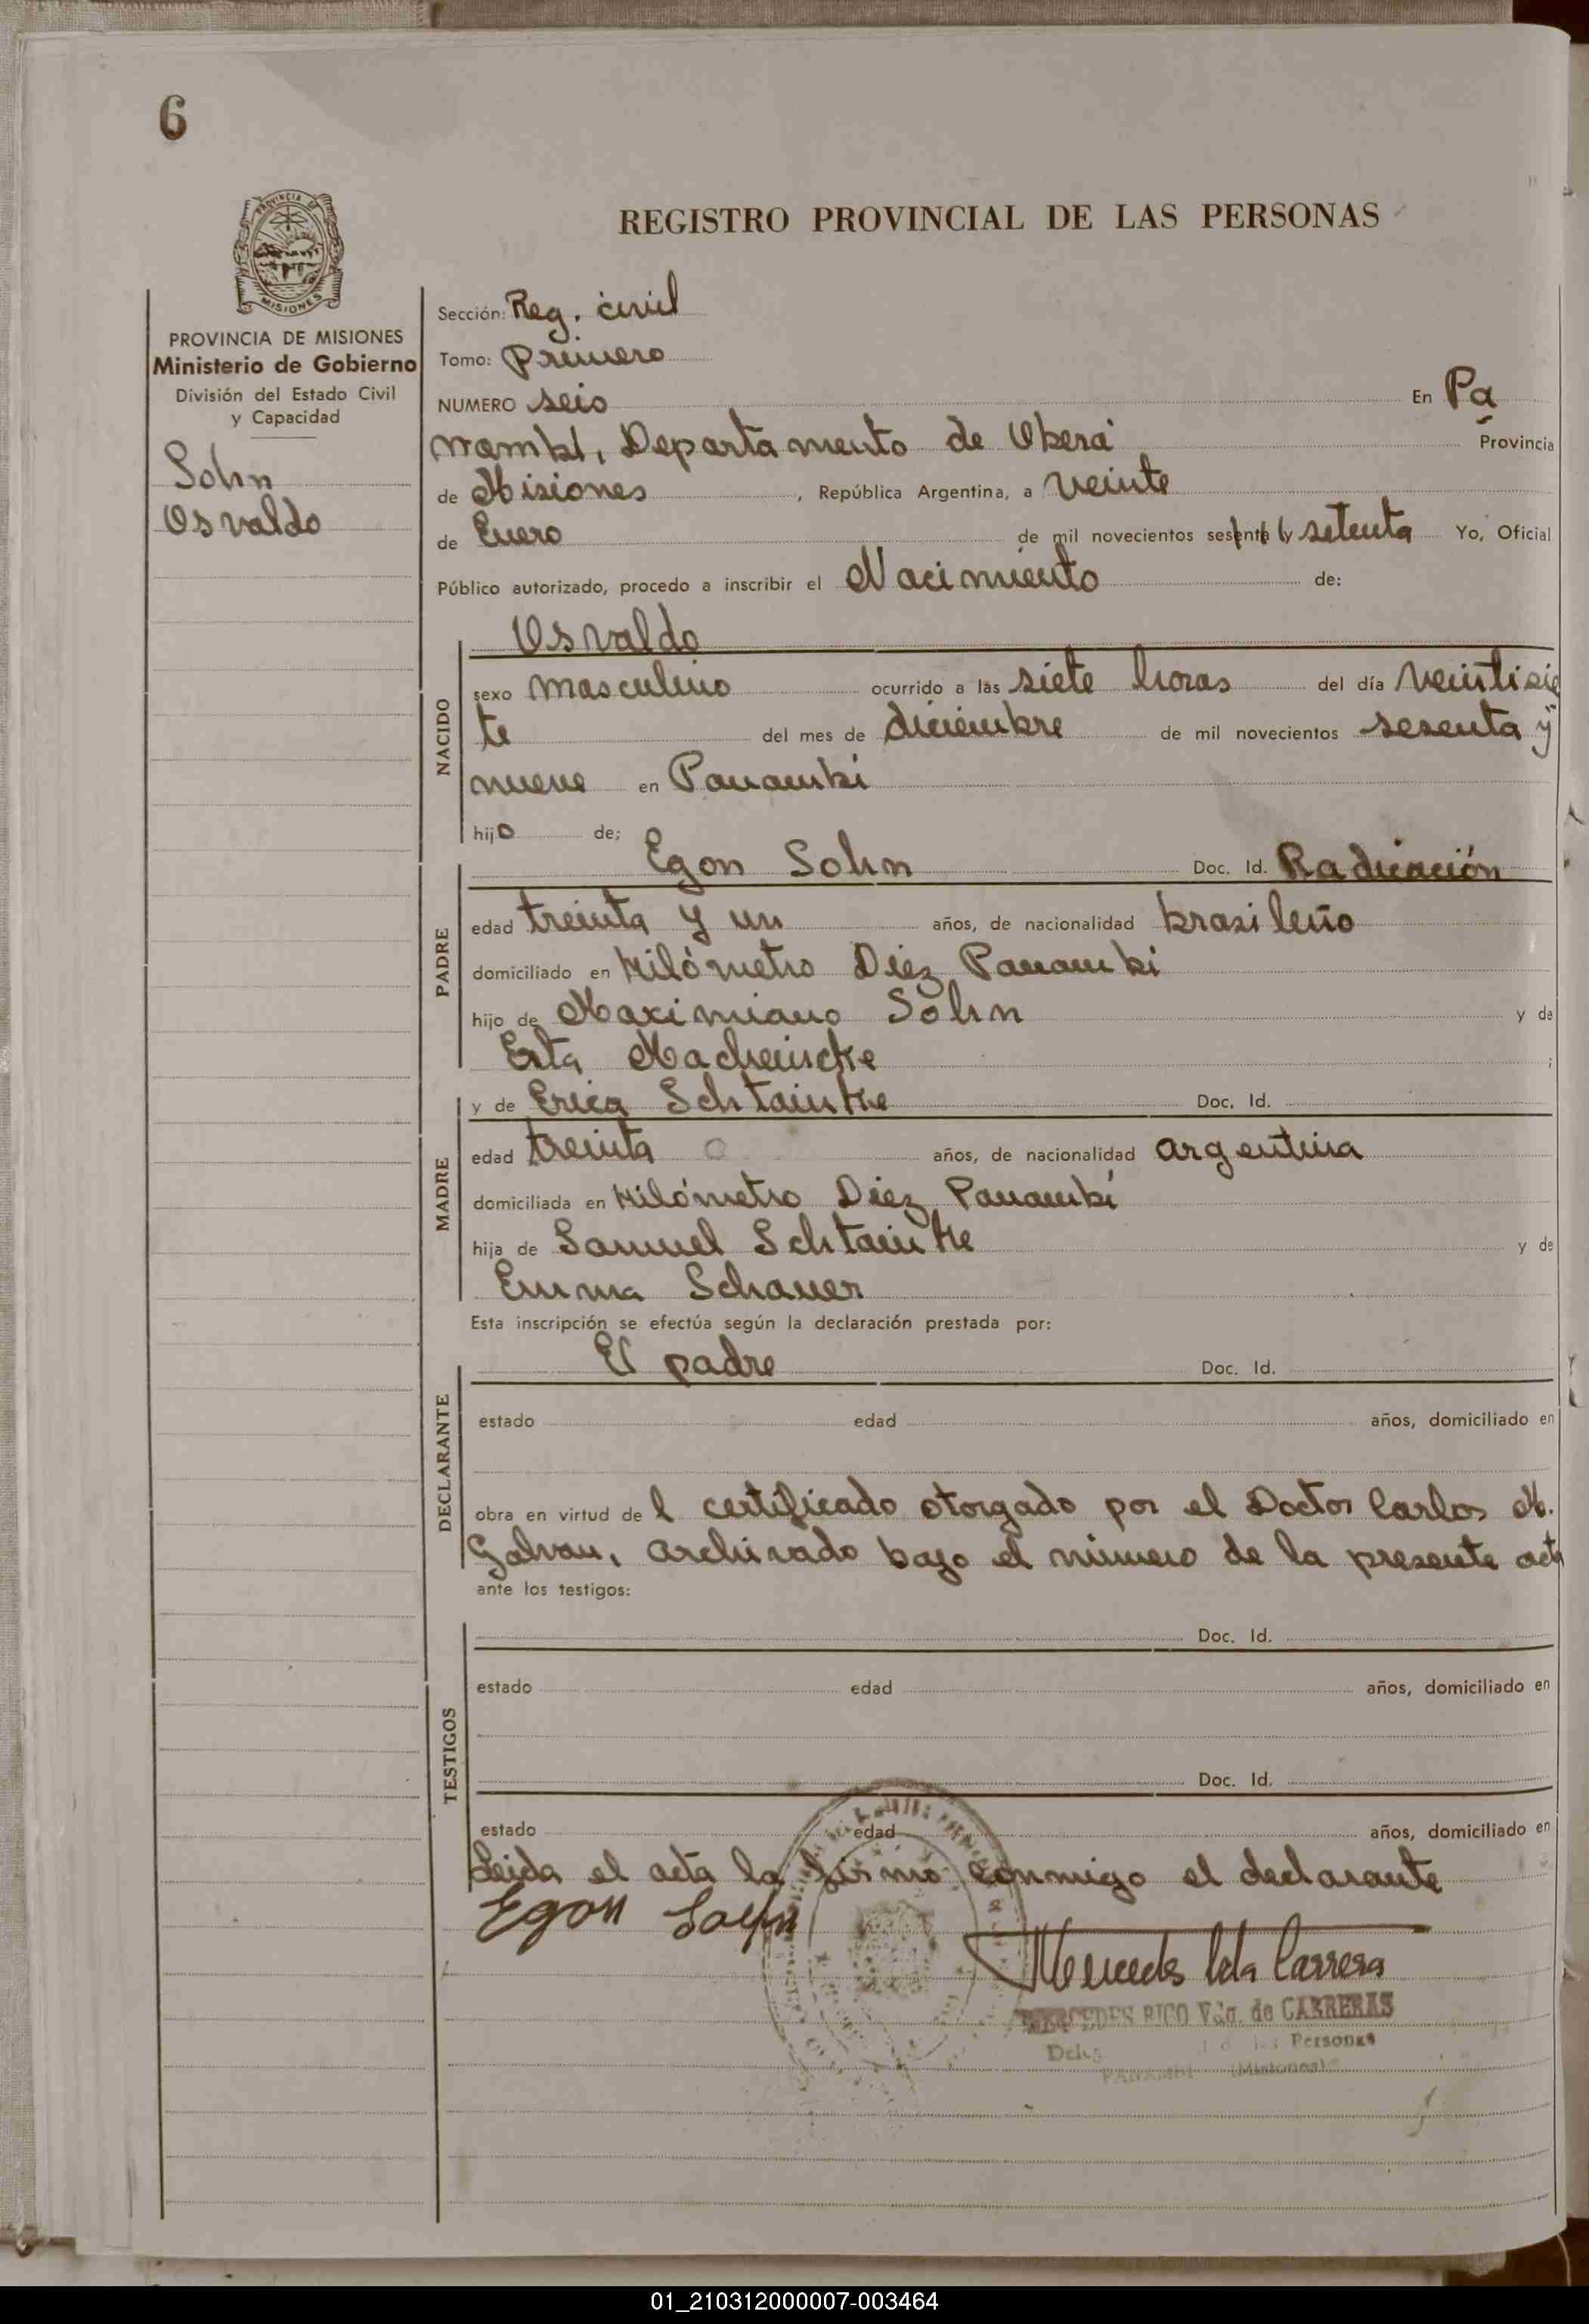 6
REGISTRO PROVINCIAL DE LAS PERSONAS
PROVINCIA DE MISIONES
Ministerio de Gobierno
División del Estado Civil
y Capacidad
Sohn
Osvaldo
Sección: Reg. civil
Tomo: Primero
NUMERO seis En Pa
nambí, Departamento de Oberá Provincia
de Misiones , República Argentina, a veinte
de Enero de mil novecientos sesenta y setenta Yo, Oficial
Público autorizado, procedo a inscribir el Nacimiento de:
Osvaldo
NACIDO
sexo masculino ocurrido a las siete horas del día veintisie
te del mes de diciembre de mil novecientos sesenta y
nueve en Panambí
hijo de;
Egon Sohn Doc. Id. Radicación
PADRE
edad treinta y un años, de nacionalidad brasileño
domiciliado en Kilómetro Diez Panambí
hijo de Maximiano Sohn y de
Erta Macheinscke ;
y de Erica Schtainke Doc. Id.
MADRE
edad treinta años, de nacionalidad argentina
domiciliada en Kilómetro Diez Panambí
hija de Samuel Schtainke y de
Emma Schauer
Esta inscripción se efectúa según la declaración prestada por:
El padre Doc. Id.
DECLARANTE
estado edad años, domiciliado en
obra en virtud del certificado otorgado por el Doctor Carlos M.
Galvan, archivado bajo el número de la presente acta
ante los testigos:
Doc. Id.
TESTIGOS
estado edad años, domiciliado en
Doc. Id.
estado edad años, domiciliado en
Leida el acta la firma conmigo el declarante
Egon Sohn
Mercedes Carrera
MERCEDES RICO Vda. de CARRERAS
Personas
PANAMBI (Misiones)
01_210312000007-003464